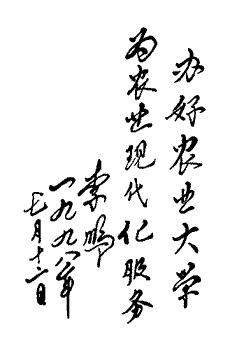 办好农业大学
为农业现代化服务
李鹏
一九九八年
七月十二日